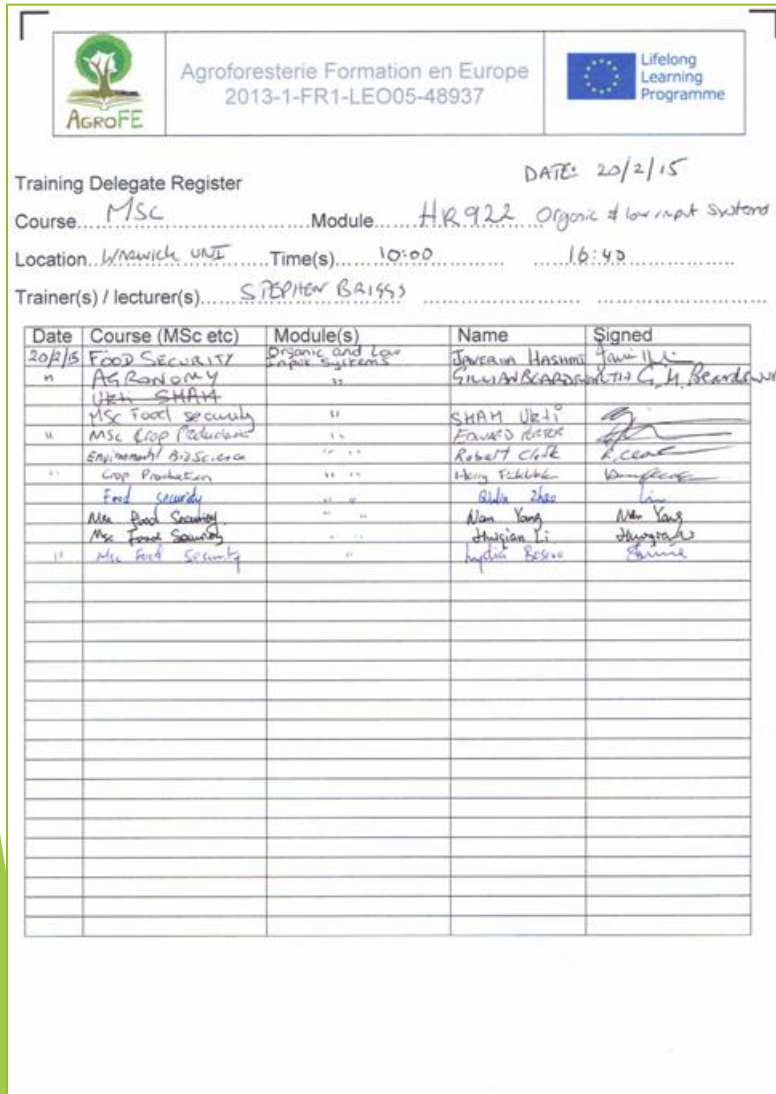 AGROFE
Agroforesterie Formation en Europe
2013-1-FR1-LEO05-48937
Lifelong
Learning
Programme
DATE: 20/2/15
Training Delegate Register
Course MSc Module HR922 Organic & low input systems
Location WARWICK UNI Time(s) 10:00 16:40
Trainer(s) / lecturer(s) STEPHEN BRIGGS
Date Course (MSc etc) Module(s) Name Signed
20/2/15 FOOD SECURITY Organic and Low Input Systems JAVERIA HASHMI
" AGRONOMY " GILLIAN BEARDSWORTH G. M. Beardsworth
Ukti SHAM
MSc Food security " SHAM Ukti
" MSc Crop Production " EDWARD
Environmental BioScience " " Robert Clark R. Clark
" Crop Production " " Henry
Food security " " Zhao
Msc Food Security " " Nan Yang Nan Yang
Msc Food Security " " Li
" Msc Food Security " Lydia